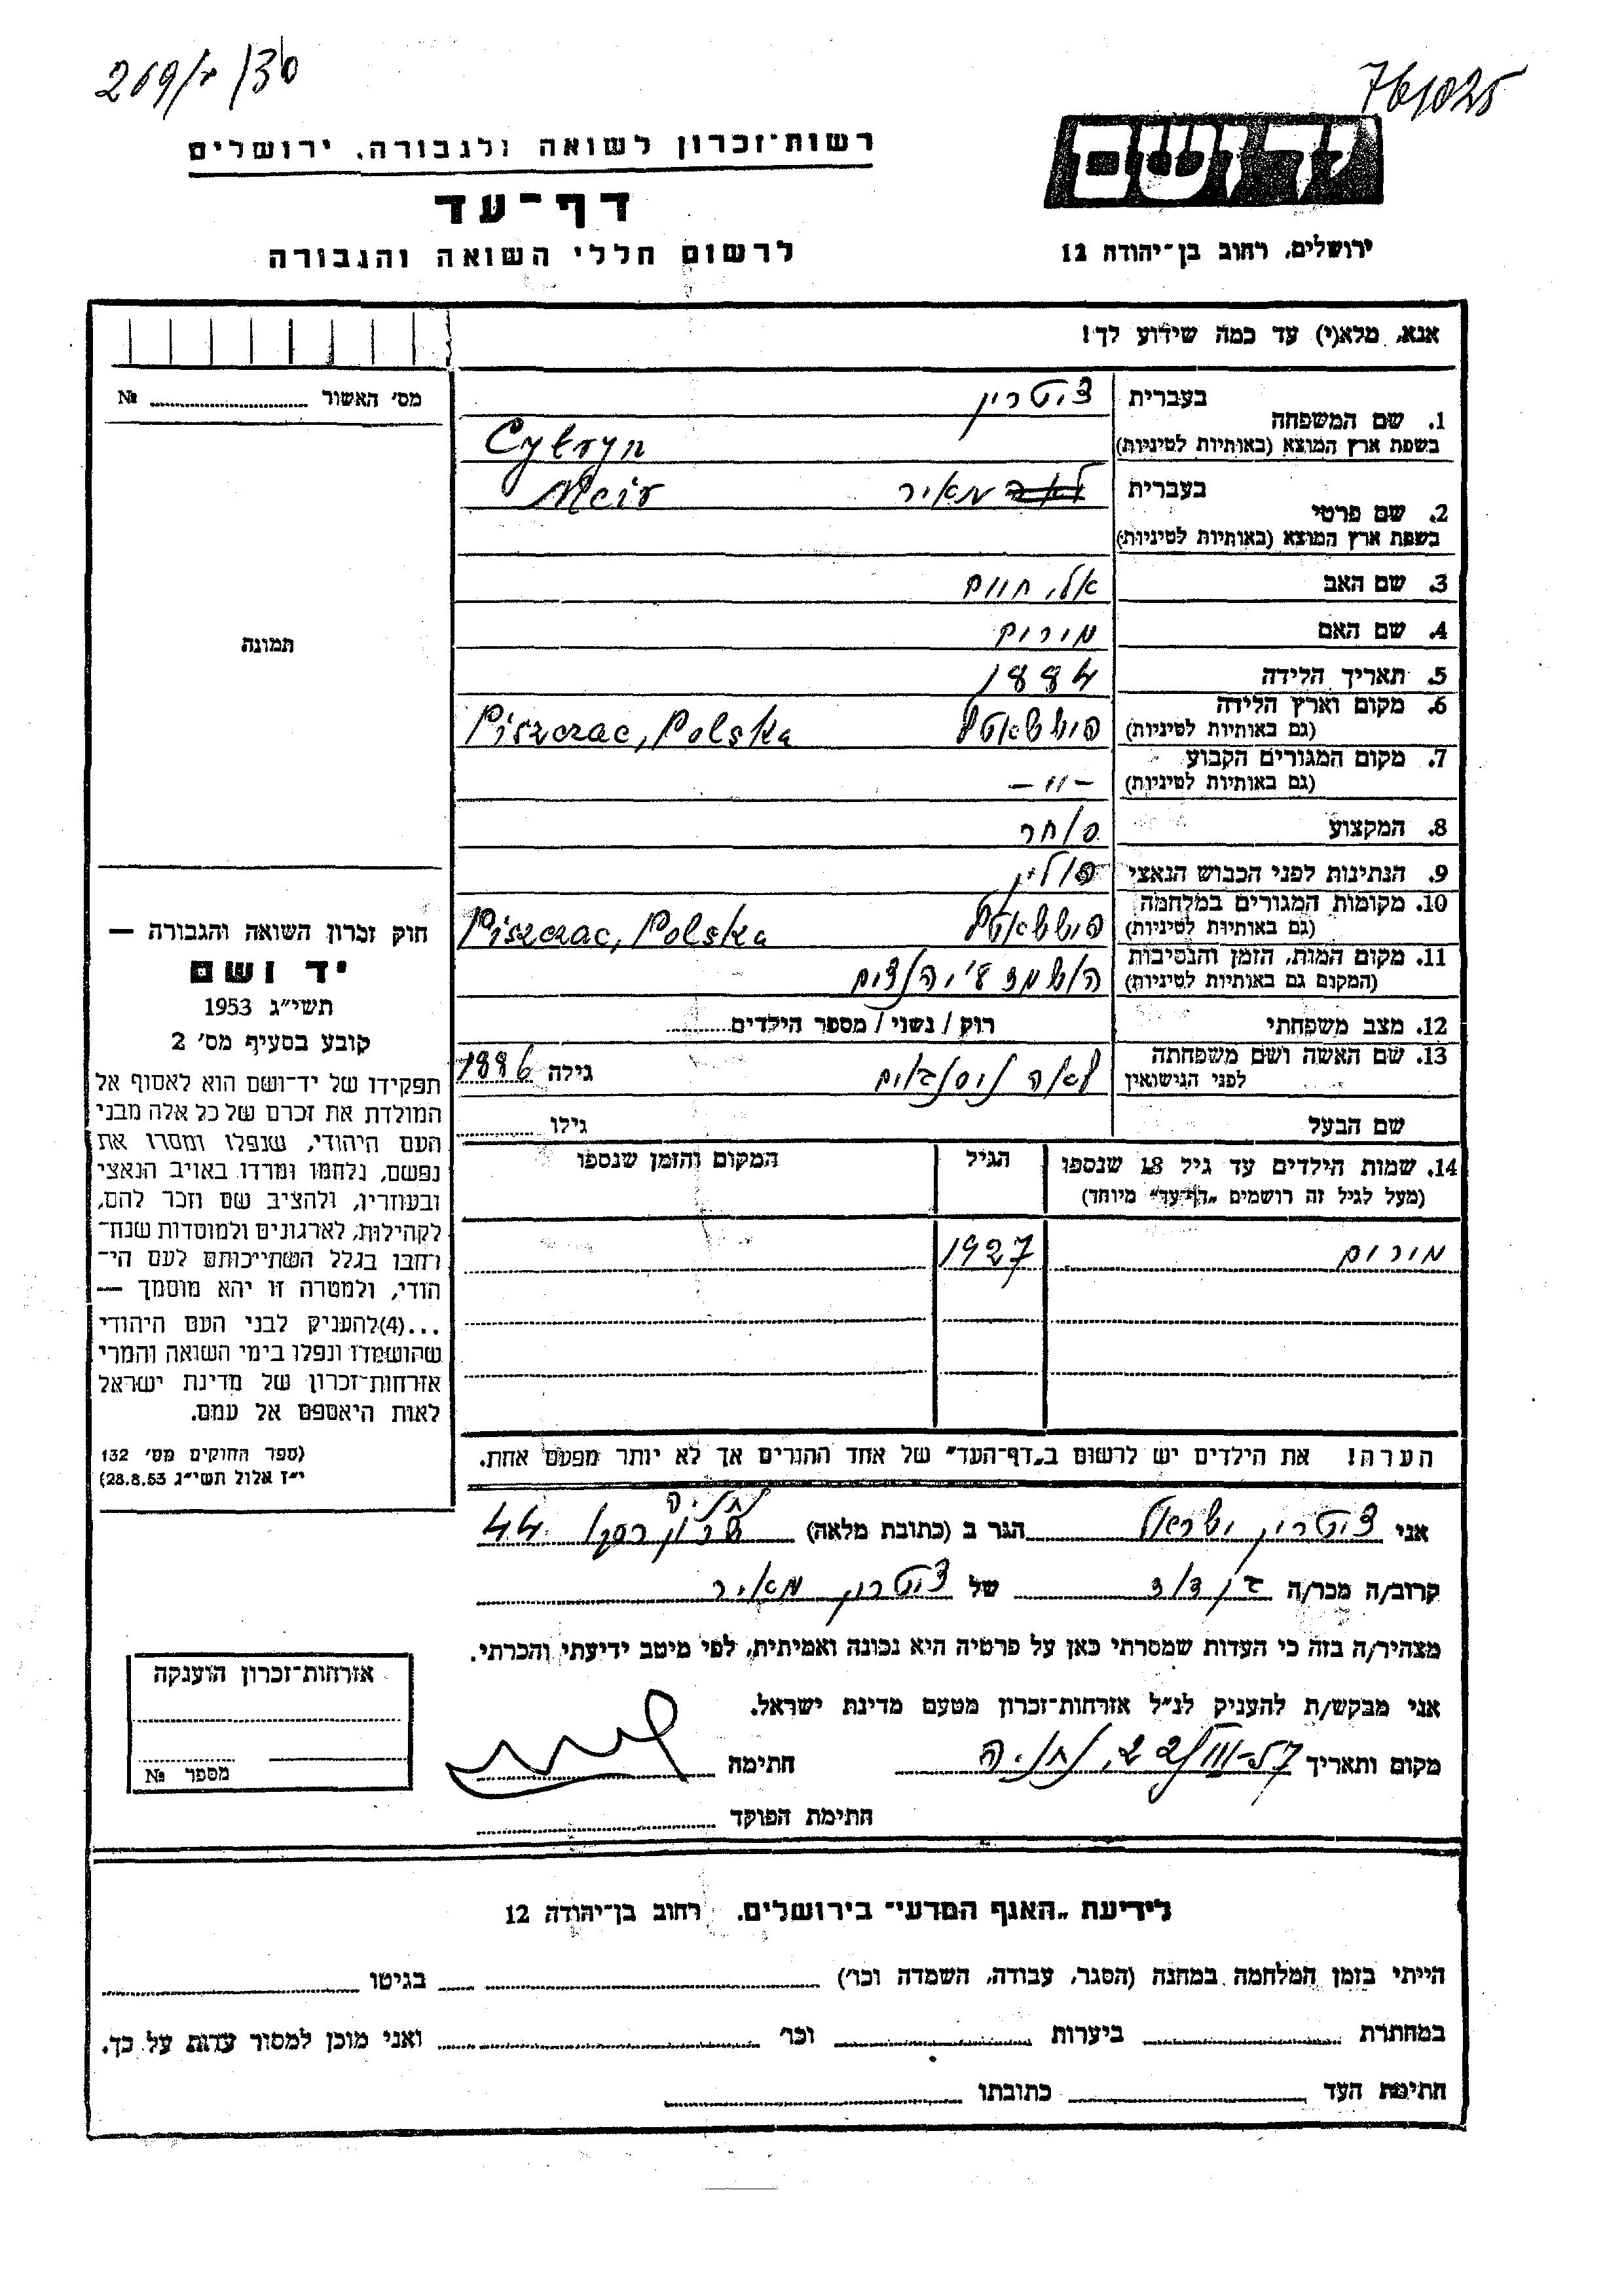 269/ר/30
761025
רשות־זכרון לשואה ולגבורה, ירושלים
ידושם
דף־עד
לרשום חללי השואה והגבורה
ירושלים, רחוב בן־יהודה 12
אנא, מלא(י) עד כמה שידוע לך!
מס׳ האשור № 
תמונה
1. שם המשפחה
בעברית ציטרין
בשפת ארץ המוצא (באותיות לטיניות) Cytryn
2. שם פרטי
בעברית מאיר Meir
בשפת ארץ המוצא (באותיות לטיניות)
3. שם האב אלי חיים
4. שם האם מירים
5. תאריך הלידה 1884
6. מקום וארץ הלידה
(גם באותיות לטיניות) Piszczac, Polska
7. מקום המגורים הקבוע
(גם באותיות לטיניות) – 〃 –
8. המקצוע סוחר
9. הנתינות לפני הכבוש הנאצי פולין
10. מקומות המגורים במלחמה
(גם באותיות לטיניות) Piszczac, Polska
11. מקום המות, הזמן והנסיבות
(המקום גם באותיות לטיניות) הושמד ע״י הנצים
12. מצב משפחתי רוק / נשוי / מספר הילדים
13. שם האשה ושם משפחתה
לפני הנישואין לאה גילה 1886
שם הבעל גילו
14. שמות הילדים עד גיל 18 שנספו
(מעל לגיל זה רושמים „דף־עד״ מיוחד)
הגיל
המקום והזמן שנספו
מירים 1927
הערה! את הילדים יש לרשום ב„דף־העד״ של אחד ההורים אך לא יותר מפעם אחת.
חוק זכרון השואה והגבורה —
יד ושם
תשי״ג 1953
קובע בסעיף מס׳ 2
תפקידו של יד־ושם הוא לאסוף אל
המולדת את זכרם של כל אלה מבני
העם היהודי, שנפלו ומסרו את
נפשם, נלחמו ומרדו באויב הנאצי
ובעוזריו, ולהציב שם וזכר להם,
לקהילות, לארגונים ולמוסדות שנח־
רחבו בגלל השתייכותם לעם הי־
הודי, ולמטרה זו יהא מוסמך —
...(4)להעניק לבני העם היהודי
שהושמדו ונפלו בימי השואה והמרי
אזרחות־זכרון של מדינת ישראל
לאות היאספם אל עמם.
(ספר החוקים מס׳ 132
י״ז אלול תשי״ג 28.8.53)
אני ציטרין ישראל הגר ב (כתובת מלאה) נתניה 44
קרוב/ה מכר/ה בן דוד של ציטרין מאיר
מצהיר/ה בזה כי העדות שמסרתי כאן על פרטיה היא נכונה ואמיתית, לפי מיטב ידיעתי והכרתי.
אני מבקש/ת להעניק לנ״ל אזרחות־זכרון מטעם מדינת ישראל.
מקום ותאריך 22/III-57, נתניה חתימה
חתימת הפוקד
אזרחות־זכרון הוענקה
מספר №
לידיעת „האגף המדעי״ בירושלים, רחוב בן־יהודה 12
הייתי בזמן המלחמה במחנה (הסגר, עבודה, השמדה וכר׳) בגיטו
במחתרת ביערות וכר׳ ואני מוכן למסור עדות על כך.
חתימת העד כתובתו